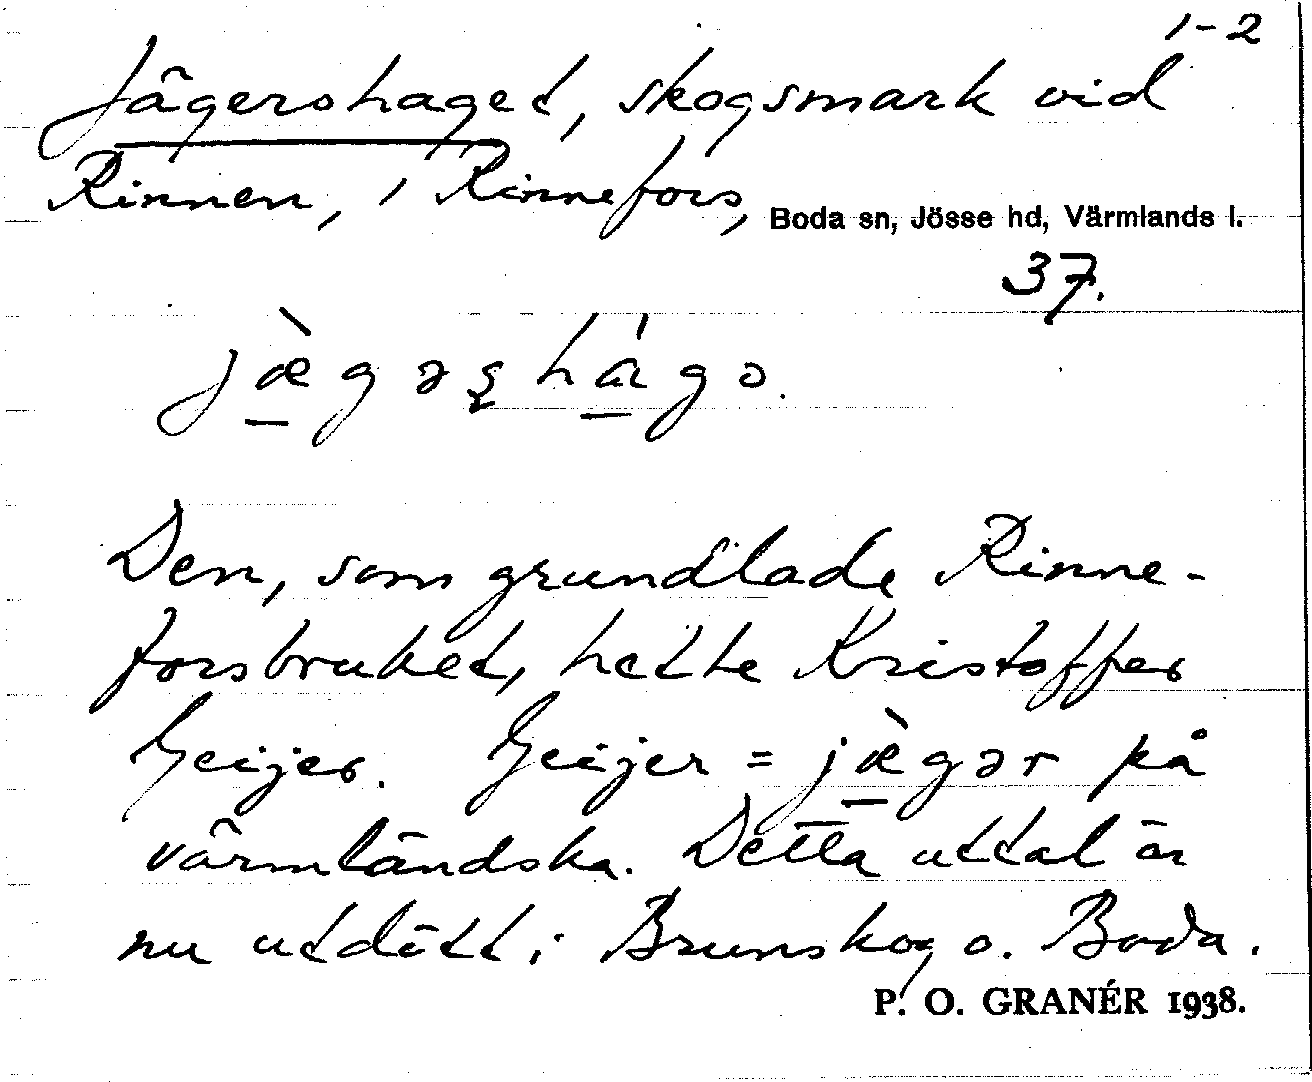 1-2
Jägershaget, skogsmark vid
Rinnen, i Rinnefors,
Boda sn, Jösse hd, Värmlands l.
37.
jæ̀gəʂhágo.
Den, som grundlade Rinne-
forsbruket, hette Kristoffer
Geijer. Geijer = jæ̀gər på
värmländska. Detta uttal är
nu utdött i Brunskog o. Boda.
P. O. GRANÉR 1938.